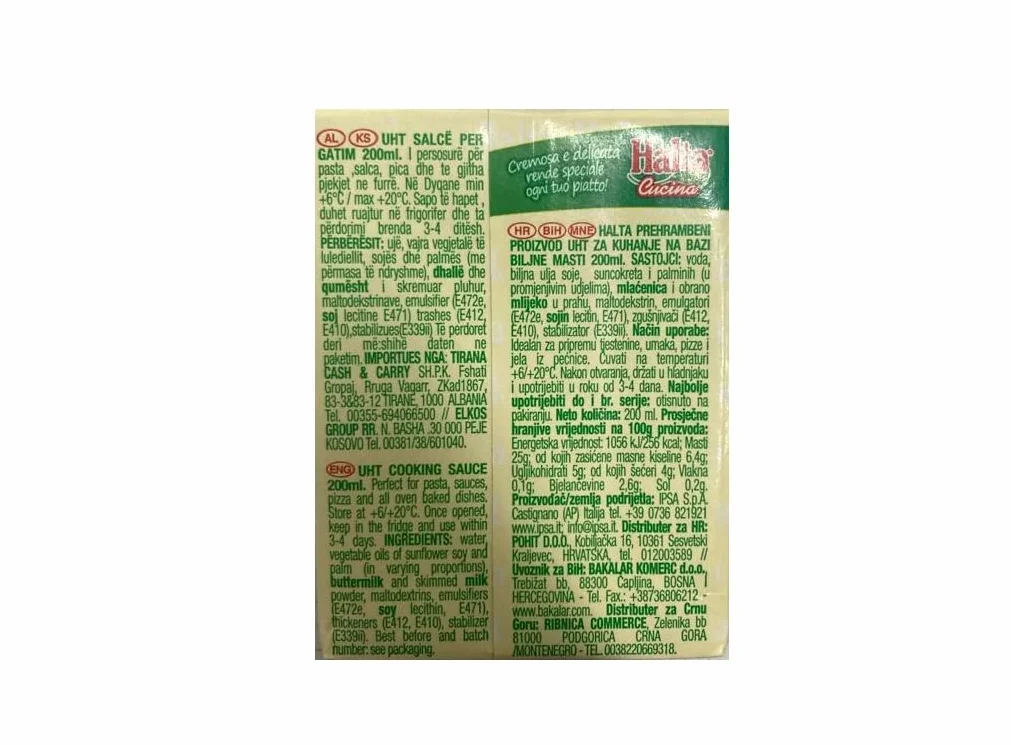 AL KS UHT SALCË PER
GATIM 200ml. I persosurë për
pasta ,salca, pica dhe te gjitha
pjekjet ne furrë. Në Dyqane min
+6°C / max +20°C. Sapo të hapet ,
duhet ruajtur në frigorifer dhe ta
përdorimi brenda 3-4 ditësh.
PËRBËRËSIT: ujë, vajra vegjetalë të
lulediellit, sojës dhe palmës (me
përmasa të ndryshme), dhallë dhe
qumësht i skremuar pluhur,
maltodekstrinave, emulsifier (E472e,
soj lecitine E471) trashes (E412,
E410),stabilizues(E339ii) Të perdoret
deri më:shihë daten ne
paketim. IMPORTUES NGA: TIRANA
CASH & CARRY SH.P.K. Fshati
Gropaj, Rruga Vagarr, ZKad1867,
83-3&83-12 TIRANE, 1000 ALBANIA
Tel. 00355-694066500 // ELKOS
GROUP RR. N. BASHA .30 000 PEJE
KOSOVO Tel. 00381/38/601040.
ENG UHT COOKING SAUCE
200ml. Perfect for pasta, sauces,
pizza and all oven baked dishes.
Store at +6/+20°C. Once opened,
keep in the fridge and use within
3-4 days. INGREDIENTS: water,
vegetable oils of sunflower soy and
palm (in varying proportions),
buttermilk and skimmed milk
powder, maltodextrins, emulsifiers
(E472e, soy lecithin, E471),
thickeners (E412, E410), stabilizer
(E339ii). Best before and batch
number: see packaging.
Cremosa e delicata
rende speciale
ogni tuo piatto!
Halta
Cucina
HR BIH MNE HALTA PREHRAMBENI
PROIZVOD UHT ZA KUHANJE NA BAZI
BILJNE MASTI 200ml. SASTOJCI: voda,
biljna ulja soje, suncokreta i palminih (u
promjenjivim udjelima), mlaćenica i obrano
mlijeko u prahu, maltodekstrin, emulgatori
(E472e, sojin lecitin, E471), zgušnjivači (E412,
E410), stabilizator (E339ii). Način uporabe:
Idealan za pripremu tjestenine, umaka, pizze i
jela iz pećnice. Čuvati na temperaturi
+6/+20°C. Nakon otvaranja, držati u hladnjaku
i upotrijebiti u roku od 3-4 dana. Najbolje
upotrijebiti do i br. serije: otisnuto na
pakiranju. Neto količina: 200 ml. Prosječne
hranjive vrijednosti na 100g proizvoda:
Energetska vrijednost: 1056 kJ/256 kcal; Masti
25g; od kojih zasićene masne kiseline 6,4g;
Ugljikohidrati 5g; od kojih šećeri 4g; Vlakna
0,1g; Bjelančevine 2,6g; Sol 0,2g.
Proizvođač/zemlja podrijetla: IPSA S.p.A.
Castignano (AP) Italija tel. +39 0736 821921
www.ipsa.it; info@ipsa.it. Distributer za HR:
POHIT D.O.O., Kobiljačka 16, 10361 Sesvetski
Kraljevec, HRVATSKA, tel. 012003589 //
Uvoznik za BiH: BAKALAR KOMERC d.o.o.,
Trebižat bb, 88300 Čapljina, BOSNA I
HERCEGOVINA - Tel. Fax.: +38736806212 -
www.bakalar.com. Distributer za Crnu
Goru: RIBNICA COMMERCE, Zelenika bb
81000 PODGORICA CRNA GORA
/MONTENEGRO - TEL. 0038220669318.